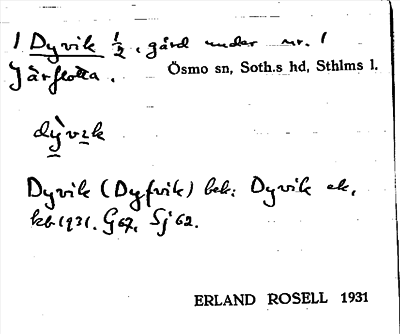 1 Dyvik 1/2, gård under nr. 1
Järflotta.
Ösmo sn, Soth.s hd, Sthlms l.
dỳvık
Dyvik (Dyfvik) bek: Dyvik ek,
kb 1931. G 67, Sj 62.
ERLAND ROSELL 1931